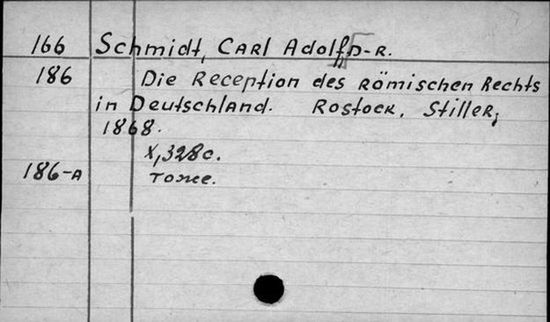 166 Schmidt, Carl Adolf, D-R.
186 Die Reception des Römischen Rechts
in Deutschland. Rostock, Stiller,
1868.
X, 328 с.
186-А Тоже.